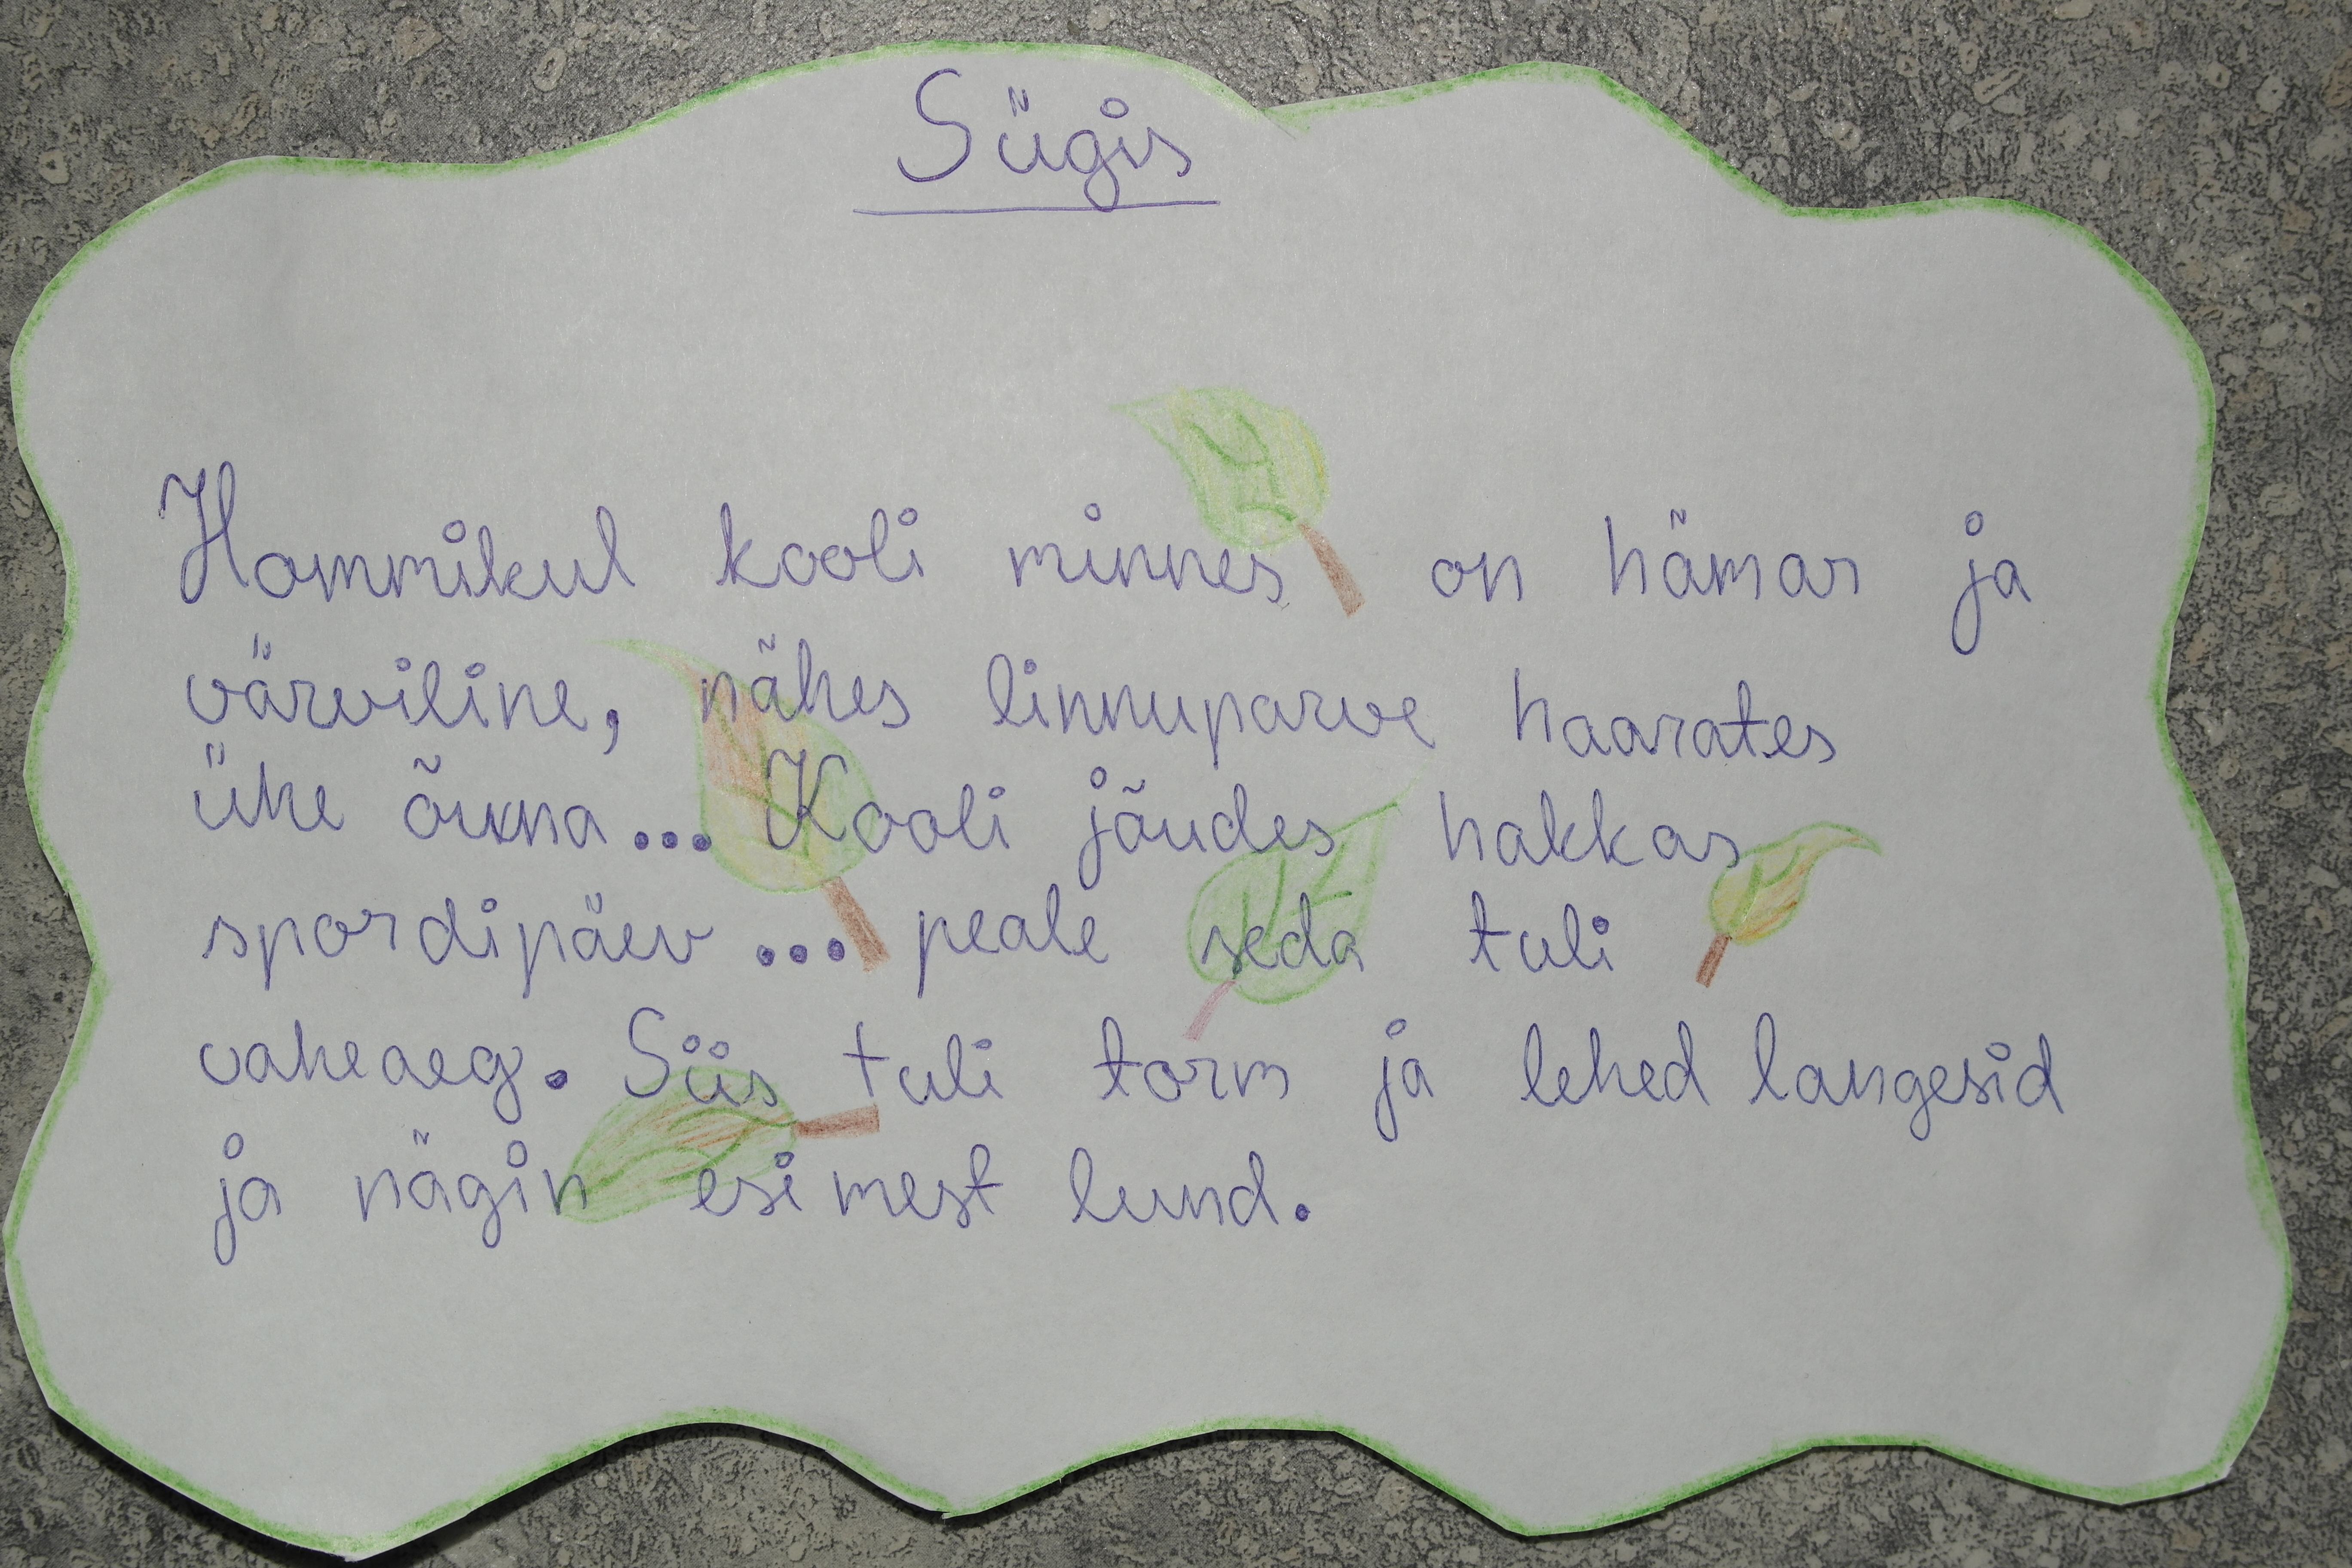 Sügis
Hommikul kooli minnes on hämar ja
värviline, nähes linnuparve haarates
ühe õuna... Kooli jõudes hakkas
spordipäev ... peale seda tuli
vaheaeg. Siis tuli torm ja lehed langesid
ja nägin esimest lund.